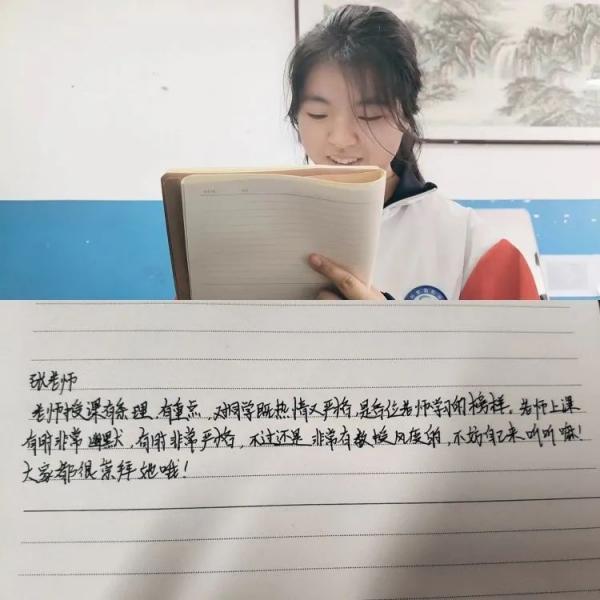 张老师
老师授课有条理,有重点,对同学既热情又严格,是各位老师学习的榜样。老师上课
有时非常幽默,有时非常严格,不过还是非常有教授风度的,不妨自己来听听嘛!
大家都很崇拜她哦!